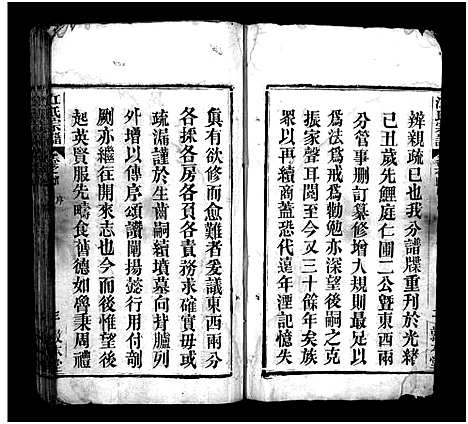 辨親疏已也我分譜牒重刊於光緒
己丑歲先鯉庭仁圃二公暨東西兩
分管事刪訂纂修增大規則最足以
為法為戒為勸勉亦深望後嗣之克
振家聲耳閱至今又三十餘年矣族
眾以再續商蓋恐代遠年湮記憶失
真有欲修而愈難者爰議東西兩分
各採各房各頁各責務求確實毋或
疏漏謹於生齒嗣續墳墓向拜臚列
外增以傳序頌讚闡揚懿行用付剞
劂亦繼往開來志也今而後惟望後
起英賢服先疇食舊德如魯秉周禮
江氏宗譜
序